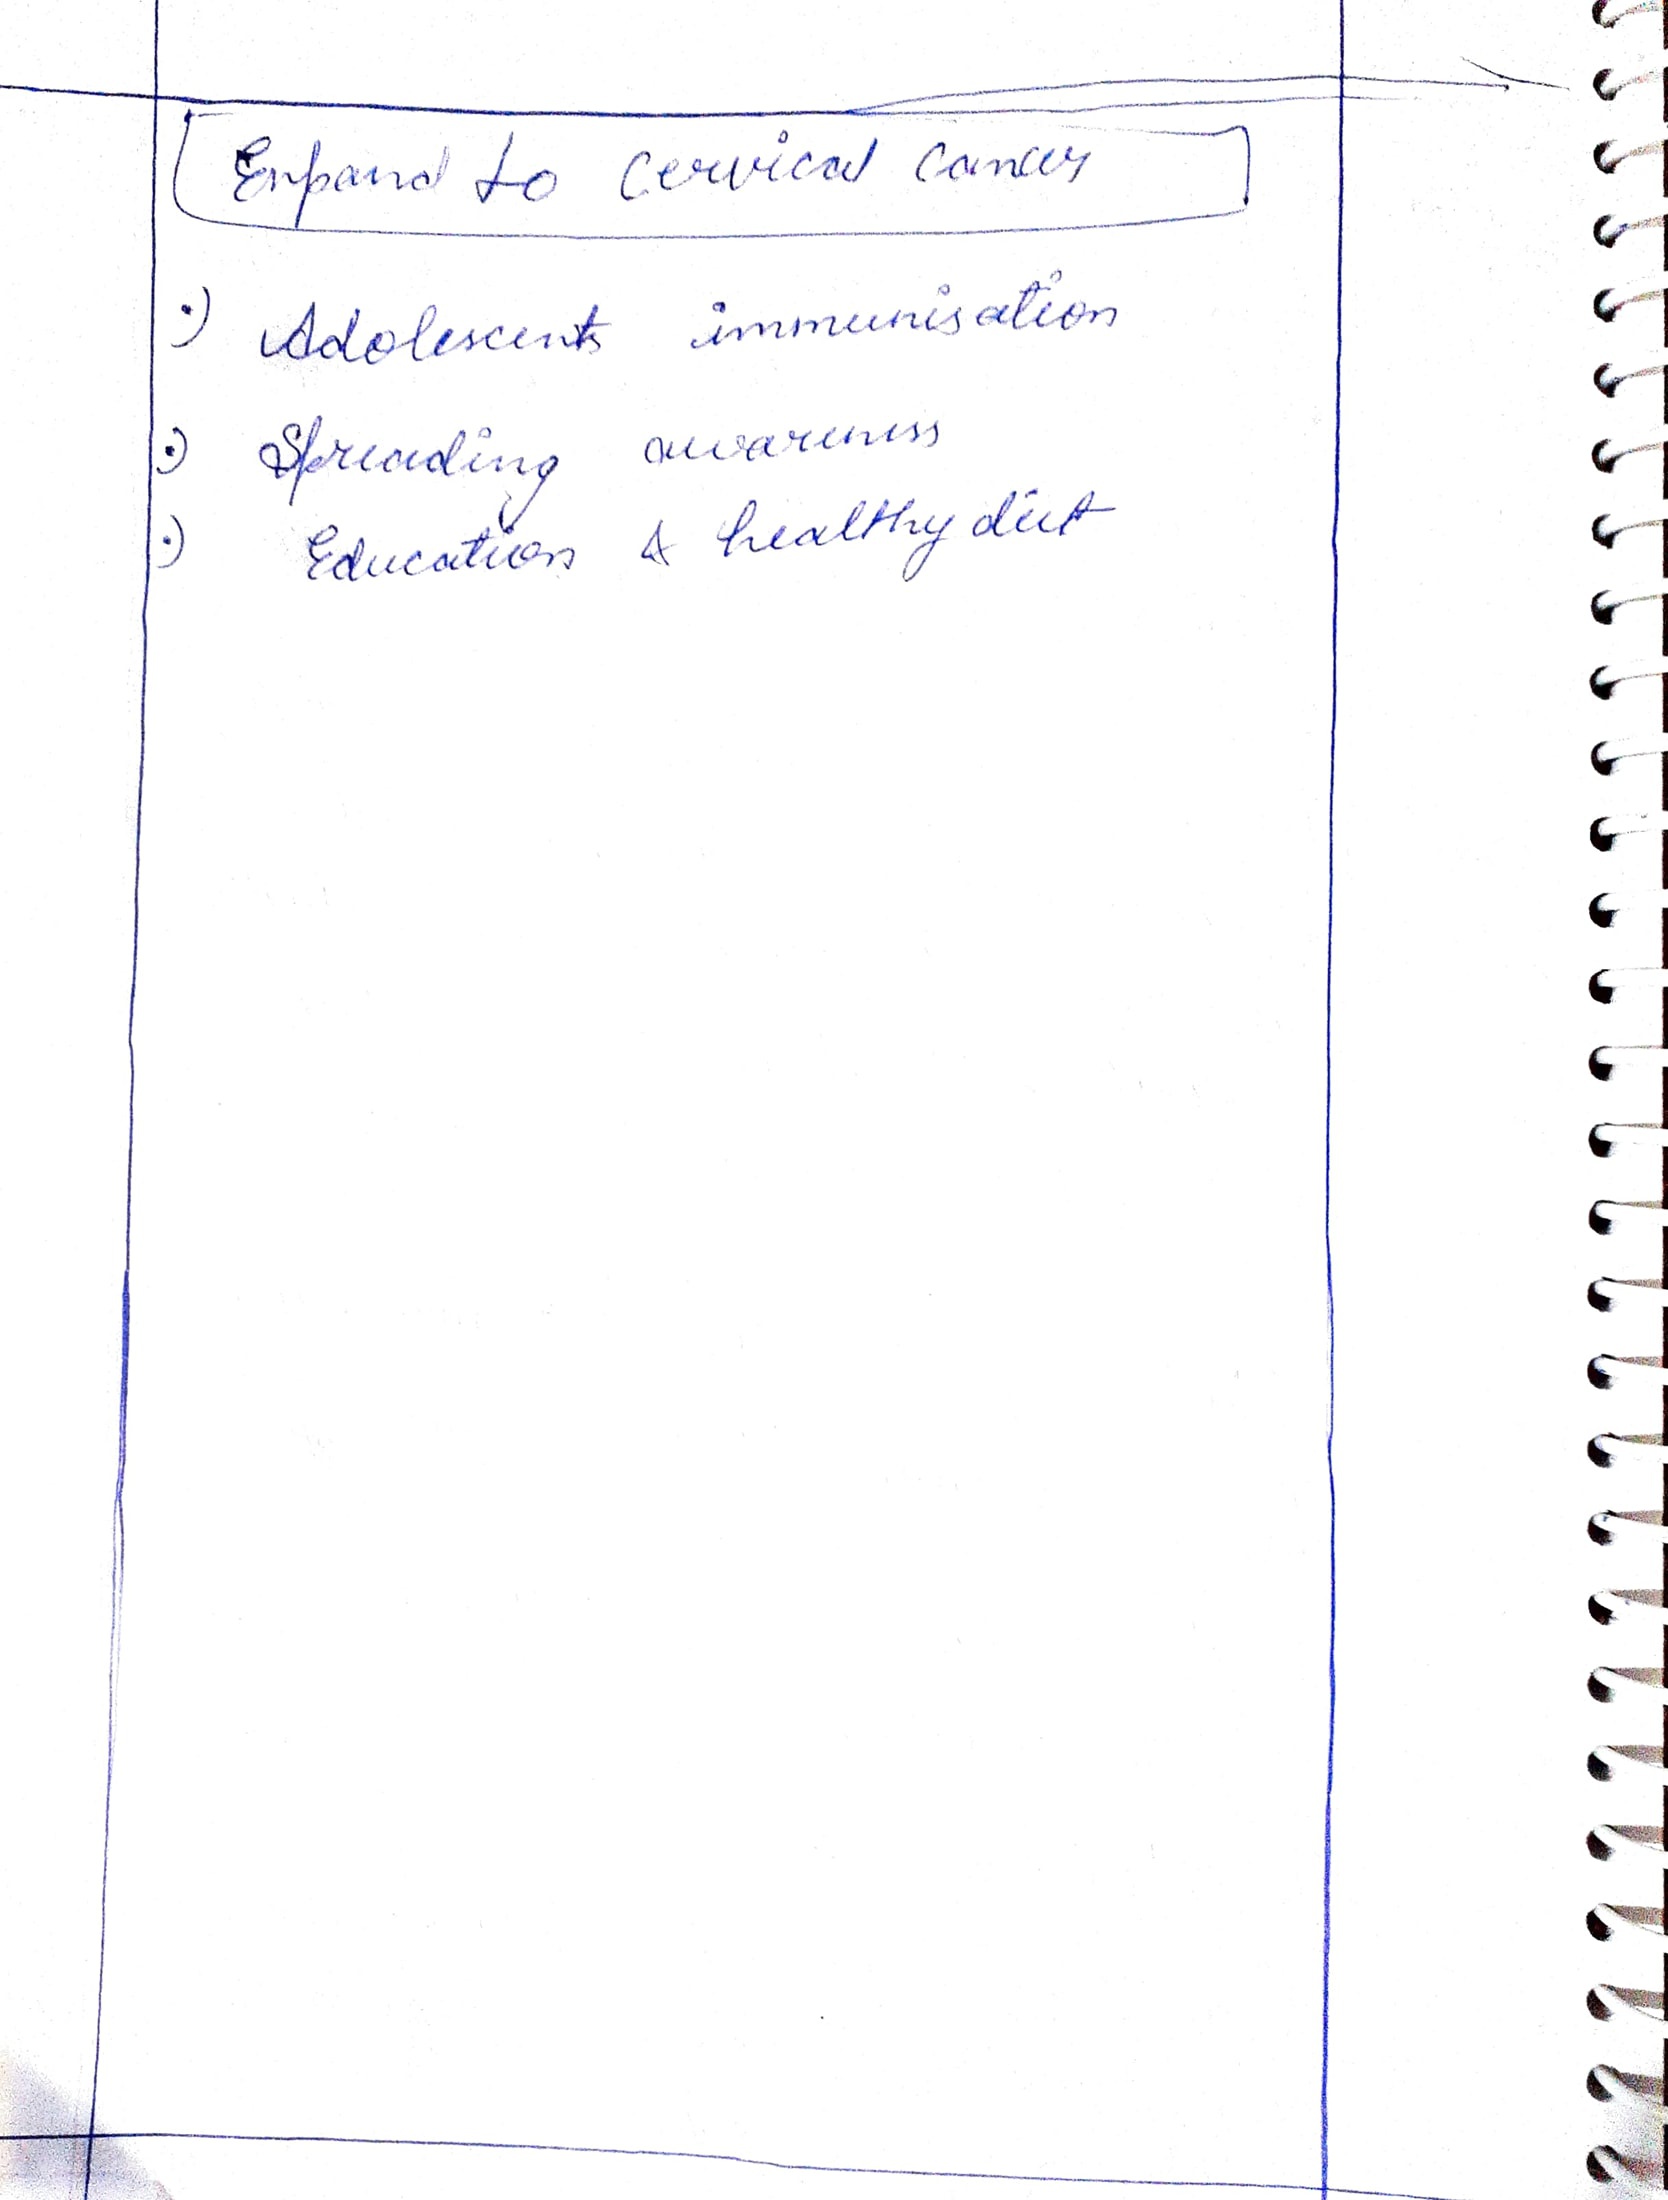 Expand to cervical cancer
·) Adolescents immunisation
·) Spreading awareness
·) Education & healthy diet